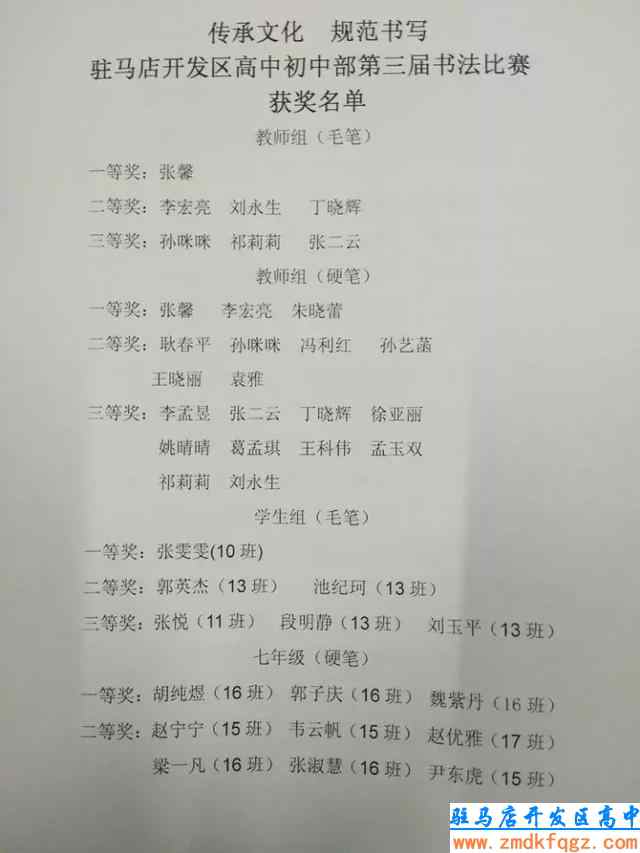 传承文化 规范书写
驻马店开发区高中初中部第三届书法比赛
获奖名单
教师组（毛笔）
一等奖：张馨
二等奖：李宏亮 刘永生 丁晓辉
三等奖：孙咪咪 祁莉莉 张二云
教师组（硬笔）
一等奖：张馨 李宏亮 朱晓蕾
二等奖：耿春平 孙咪咪 冯利红 孙艺菡
王晓丽 袁雅
三等奖：李孟昱 张二云 丁晓辉 徐亚丽
姚晴晴 葛孟琪 王科伟 孟玉双
祁莉莉 刘永生
学生组（毛笔）
一等奖：张雯雯(10 班)
二等奖：郭英杰（13 班） 池纪珂（13 班）
三等奖：张悦（11 班） 段明静（13 班） 刘玉平（13 班）
七年级（硬笔）
一等奖：胡纯煜（16 班）郭子庆（16 班） 魏紫丹（16 班）
二等奖：赵宁宁（15 班）韦云帆（15 班） 赵优雅（17 班）
梁一凡（16 班）张淑慧（16 班） 尹东虎（15 班）
驻马店开发区高中
www.zmdkfqgz.com